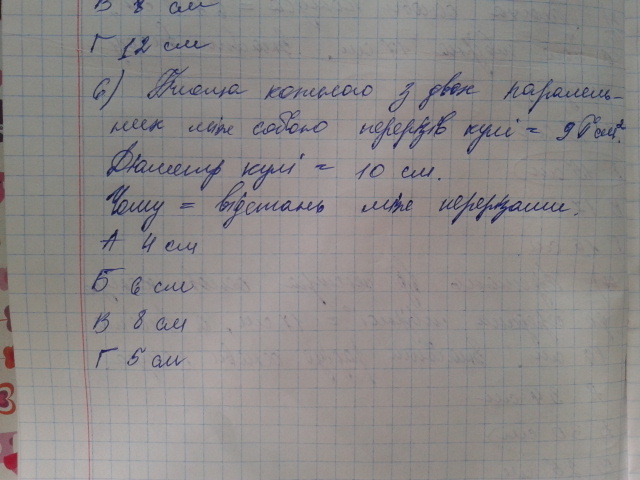 В 8 см
Г 12 см
6) Площа кожного з двох паралель-
них між собою перерізів кулі = 9П см².
Діаметр кулі = 10 см.
Чому = відстань між перерізами.
А 4 см
Б 6 см
В 8 см
Г 5 см